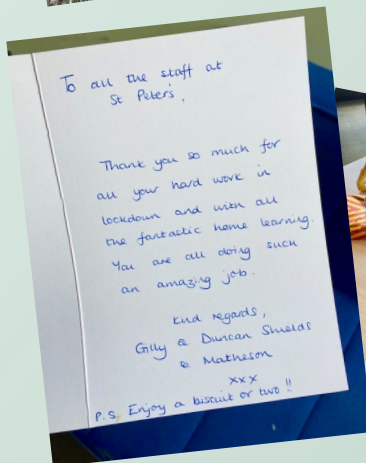 To all the staff at
St Peter's,
Thank you so much for
all your hard work in
lockdown and with all
the fantastic home learning.
You are all doing such
an amazing job.
Kind regards,
Gilly & Duncan Shields
& Matheson
xxx
P.S. Enjoy a biscuit or two !!